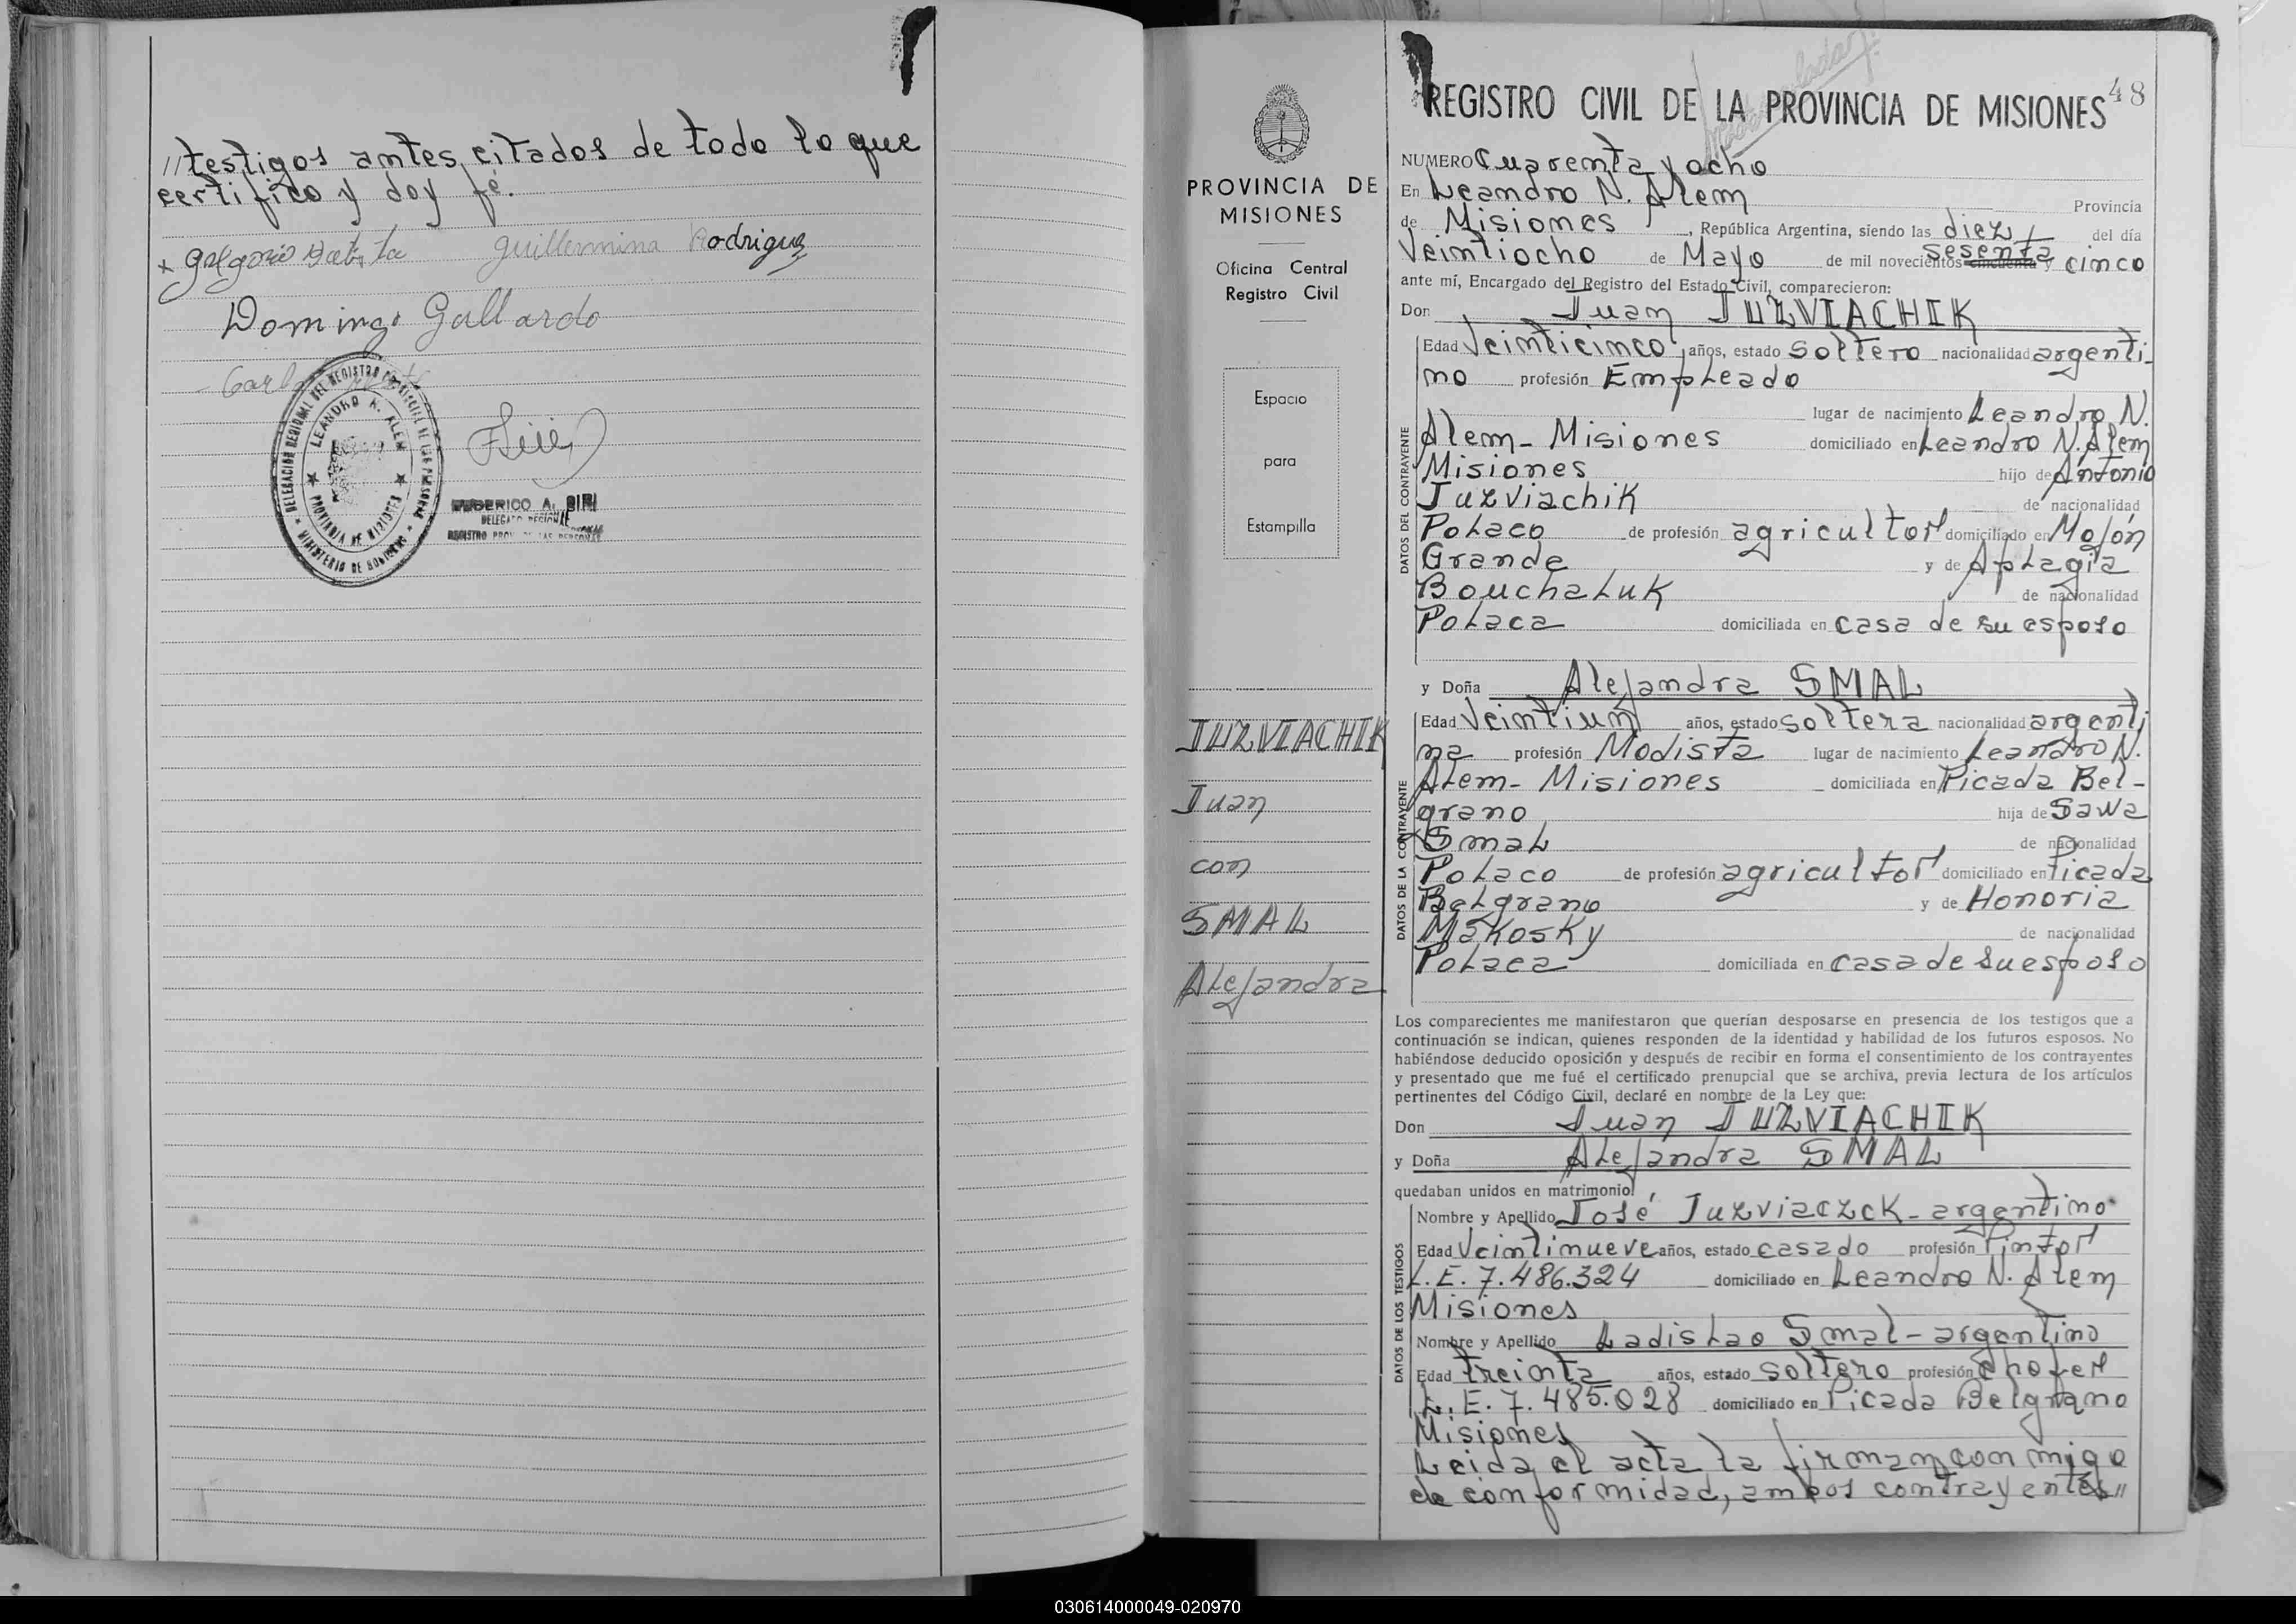 //testigos antes citados de todo lo que
certifico y doy fé.
Guillermina Rodriguez
Domingo Gallardo
DELEGACION REGIONAL DEL REGISTRO PROVINCIAL DE LAS PERSONAS
LEANDRO N. ALEM
PROVINCIA DE MISIONES
MINISTERIO DE GOBIERNO
FEDERICO A. SIRI
DELEGADO REGIONAL
REGISTRO PROV. DE LAS PERSONAS
PROVINCIA DE
MISIONES
Oficina Central
Registro Civil
Espacio
para
Estampilla
JUZVIACHIK
Juan
con
SMAL
Alejandra
48
REGISTRO CIVIL DE LA PROVINCIA DE MISIONES
NUMERO Cuarenta y ocho
En Leandro N. Alem Provincia
de Misiones, República Argentina, siendo las diez del día
Veintiocho de Mayo de mil novecientos cincuenta sesenta y cinco
ante mí, Encargado del Registro del Estado Civil, comparecieron:
Don Juan JUZVIACHIK
DATOS DEL CONTRAYENTE
Edad Veinticinco años, estado soltero nacionalidad argenti-
no profesión Empleado
lugar de nacimiento Leandro N.
Alem- Misiones domiciliado en Leandro N. Alem
Misiones hijo de Antonio
Juzviachik de nacionalidad
Polaco de profesión agricultor domiciliado en Mojón
Grande y de Aplagia
Bouchaluk de nacionalidad
Polaca domiciliada en casa de su esposo
y Doña Alejandra SMAL
DATOS DE LA CONTRAYENTE
Edad Veintiun años, estado soltera nacionalidad argenti
na profesión Modista lugar de nacimiento Leandro N.
Alem- Misiones domiciliada en Picada Bel-
grano hija de Sawa
Smal de nacionalidad
Polaco de profesión agricultor domiciliado en Picada
Belgrano y de Honoria
Makosky de nacionalidad
Polaca domiciliada en casa de su esposo
Los comparecientes me manifestaron que querían desposarse en presencia de los testigos que a
continuación se indican, quienes responden de la identidad y habilidad de los futuros esposos. No
habiéndose deducido oposición y después de recibir en forma el consentimiento de los contrayentes
y presentado que me fué el certificado prenupcial que se archiva, previa lectura de los artículos
pertinentes del Código Civil, declaré en nombre de la Ley que:
Don Juan JUZVIACHIK
y Doña Alejandra SMAL
quedaban unidos en matrimonio.
DATOS DE LOS TESTIGOS
Nombre y Apellido José Juzviaczck- argentino
Edad Veintinueve años, estado casado profesión Pintor
L.E. 7.486.324 domiciliado en Leandro N. Alem
Misiones
Nombre y Apellido Ladislao Smal- argentino
Edad treinta años, estado soltero profesión chofer
L.E. 7.485.028 domiciliado en Picada Belgrano
Misiones
Leida el acta la firman con migo
de conformidad, ambos contrayentes//
030614000049-020970